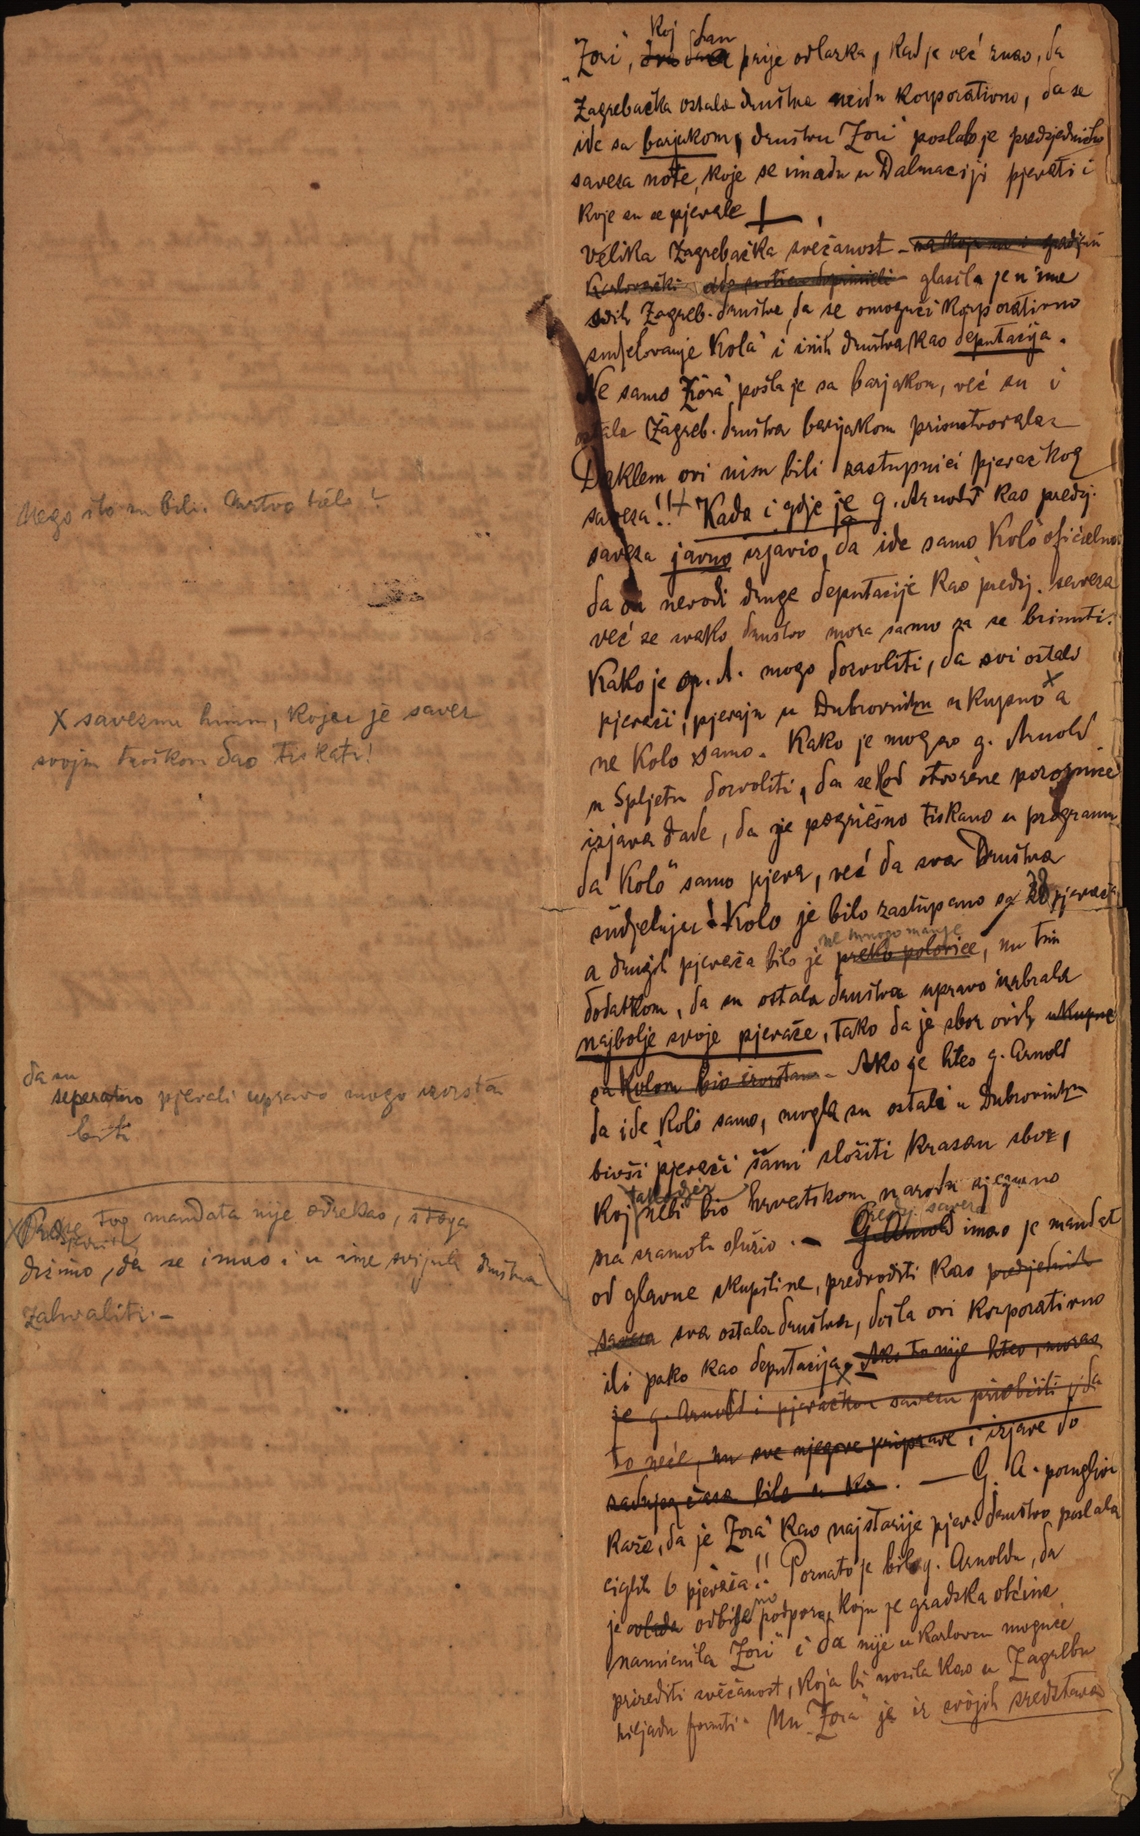 Koj dan
„Zori“, dva dana prije odlazka, kad je već znao, da
Zagrebačka ostala društva neidu korporativno, da se
ide sa barjakom, društvu „Zori“ poslalo je predsjedničtvo
saveza note, koje se imadu u Dalmaciji pjevati i
koje su se pjevale
Velika Zagrebačka svečanost – na koju su i gradjani
Karlovački glasila je u ime
svih Zagreb. društva, da se omogući korporativno
sudjelovanje „Kola“ i inih društva kao deputacija.
Ne samo „Zora“ pošla je sa barjakom, već su i
ostala Zagreb. društva barjakom prisustvovala
Daklem ovi nisu bili zastupnici pjevačkog
saveza!!+ Kada i gdje je g. Arnold kao predsj.
saveza javno izjavio, da ide samo „Kolo“ oficielno
da on nevodi druge deputacije kao predsj. saveza
već se svako društvo mora samo za se brinuti.
Kako je gp. A. mogo dozvoliti, da svi ostali
pjevači, pjevaju u Dubrovniku ukupno x a
ne Kolo samo. Kako je mogao g. Arnold
u Spljetu dozvoliti, da se kod otvorene pozornice
izjava dade, da je pogriešno tiskano u programu
da „Kolo“ samo pjeva, već da sva društva
sudjeluju! Kolo je bilo zastupano sa 38 pjevača
ne mnogo manje
a drugih pjevača bilo je preko polovice, nu tim
dodatkom, da su ostala društva upravo izabrala
najbolje svoje pjevače, tako da je sbor ovih ukupno
sa Kolom bio izvrstan – Ako je hteo g. Arnold
da ide Kolo samo, mogla su ostali u Dubrovniku
bivši pjevači sami složiti krasan sbor,
takodjer
koj nebi bio hrvatskom narodu sjegurno
Predsj. saveza
na sramotu služio. – G. Arnold imao je mandat
od glavne skupštine, predvoditi kao predsjednik
saveza sva ostala društva, došla ovi korporativno
ili pako kao deputacija. x Ako to nije hteo, morao
je g. Arnold i pjevačkom savezu priobćiti, da
to neće, nu sve njegove priprave i izjave do
zadnjeg časa bile u . — G. A. porugljivo
kaže, da je „Zora“ kao najstarije pjev. društvo poslala
ciglih 6 pjevača!! Poznato je bilo g. Arnoldu, da
je vlada odbila podporu, koju je gradska obćina
namienila „Zori“ i da nije u Karlovcu moguće
prirediti svečanost, koja bi nosila kao u Zagrebu
hiljadu forinti. Nu „Zora“ je iz svojih sredstava
Nego što su bili. Mrtvo tielo?
X savezni himnu, koju je savez
svojim troškom dao tiskati!
da su
seperatno pjevali upravo mogo izvrstan
biti
X tog mandata nije odrekao, stoga
držimo, da se imao i u ime svijuh društva
zahvaliti. –